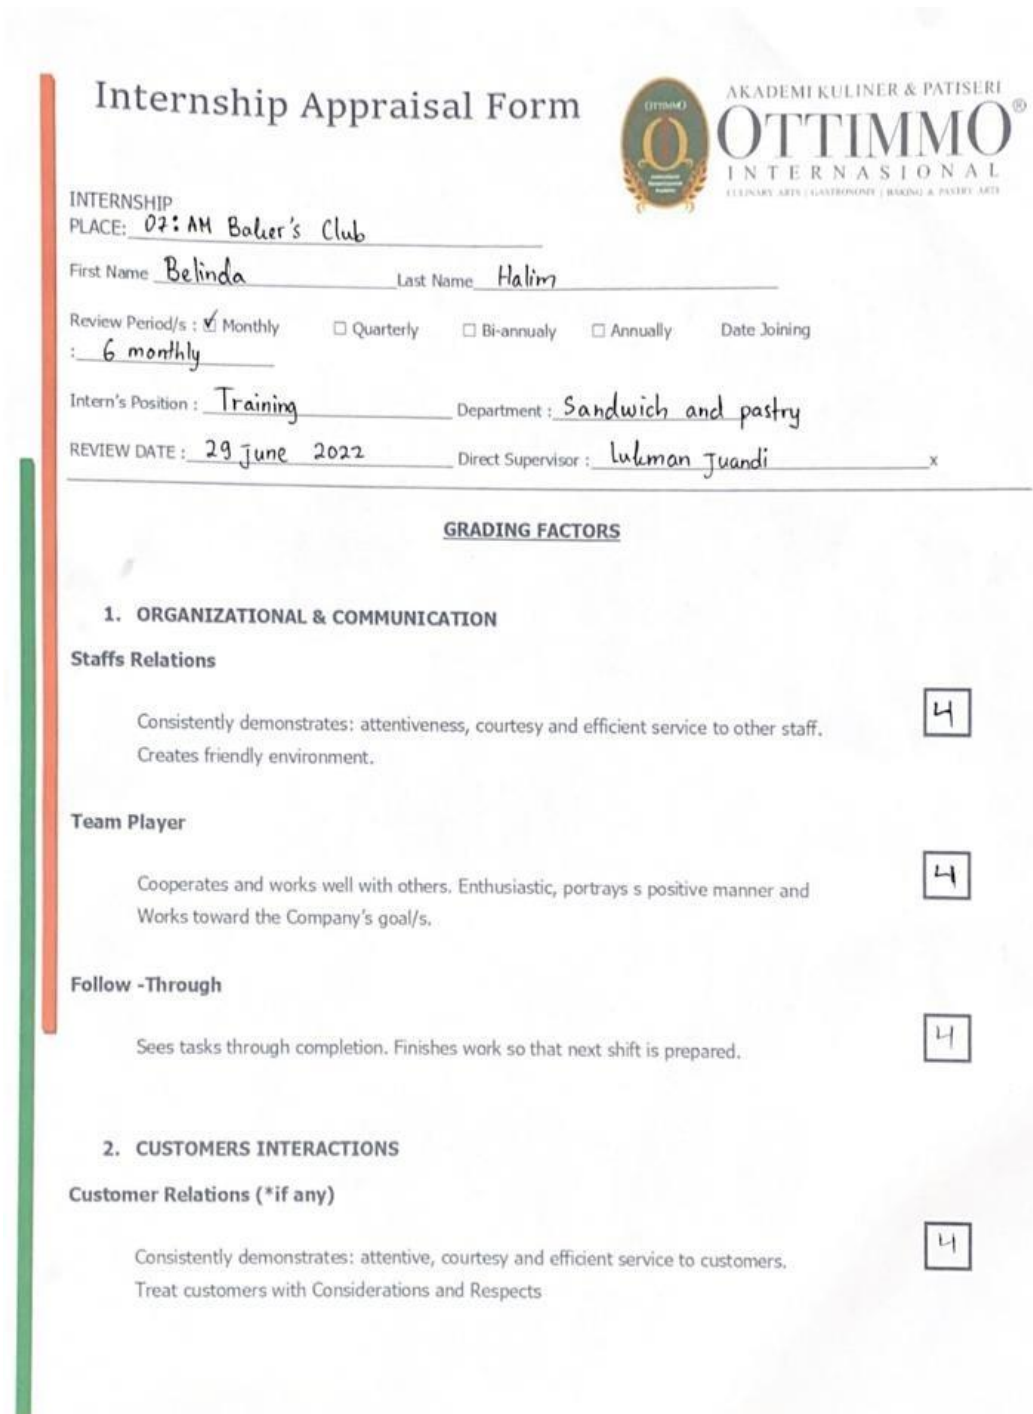 Internship Appraisal Form
OTTIMMO
AKADEMI KULINER & PATISERI
OTTIMMO®
INTERNASIONAL
CULINARY ARTS | GASTRONOMY | BAKING & PASTRY ARTS
INTERNSHIP
PLACE: 07:AM Baker's Club
First Name Belinda Last Name Halim
Review Period/s : ☑ Monthly ☐ Quarterly ☐ Bi-annualy ☐ Annually Date Joining
: 6 monthly
Intern's Position : Training Department : Sandwich and pastry
REVIEW DATE : 29 June 2022 Direct Supervisor : Lukman Juandi x
GRADING FACTORS
1. ORGANIZATIONAL & COMMUNICATION
Staffs Relations
Consistently demonstrates: attentiveness, courtesy and efficient service to other staff. 4
Creates friendly environment.
Team Player
Cooperates and works well with others. Enthusiastic, portrays s positive manner and 4
Works toward the Company's goal/s.
Follow -Through
Sees tasks through completion. Finishes work so that next shift is prepared. 4
2. CUSTOMERS INTERACTIONS
Customer Relations (*if any)
Consistently demonstrates: attentive, courtesy and efficient service to customers. 4
Treat customers with Considerations and Respects